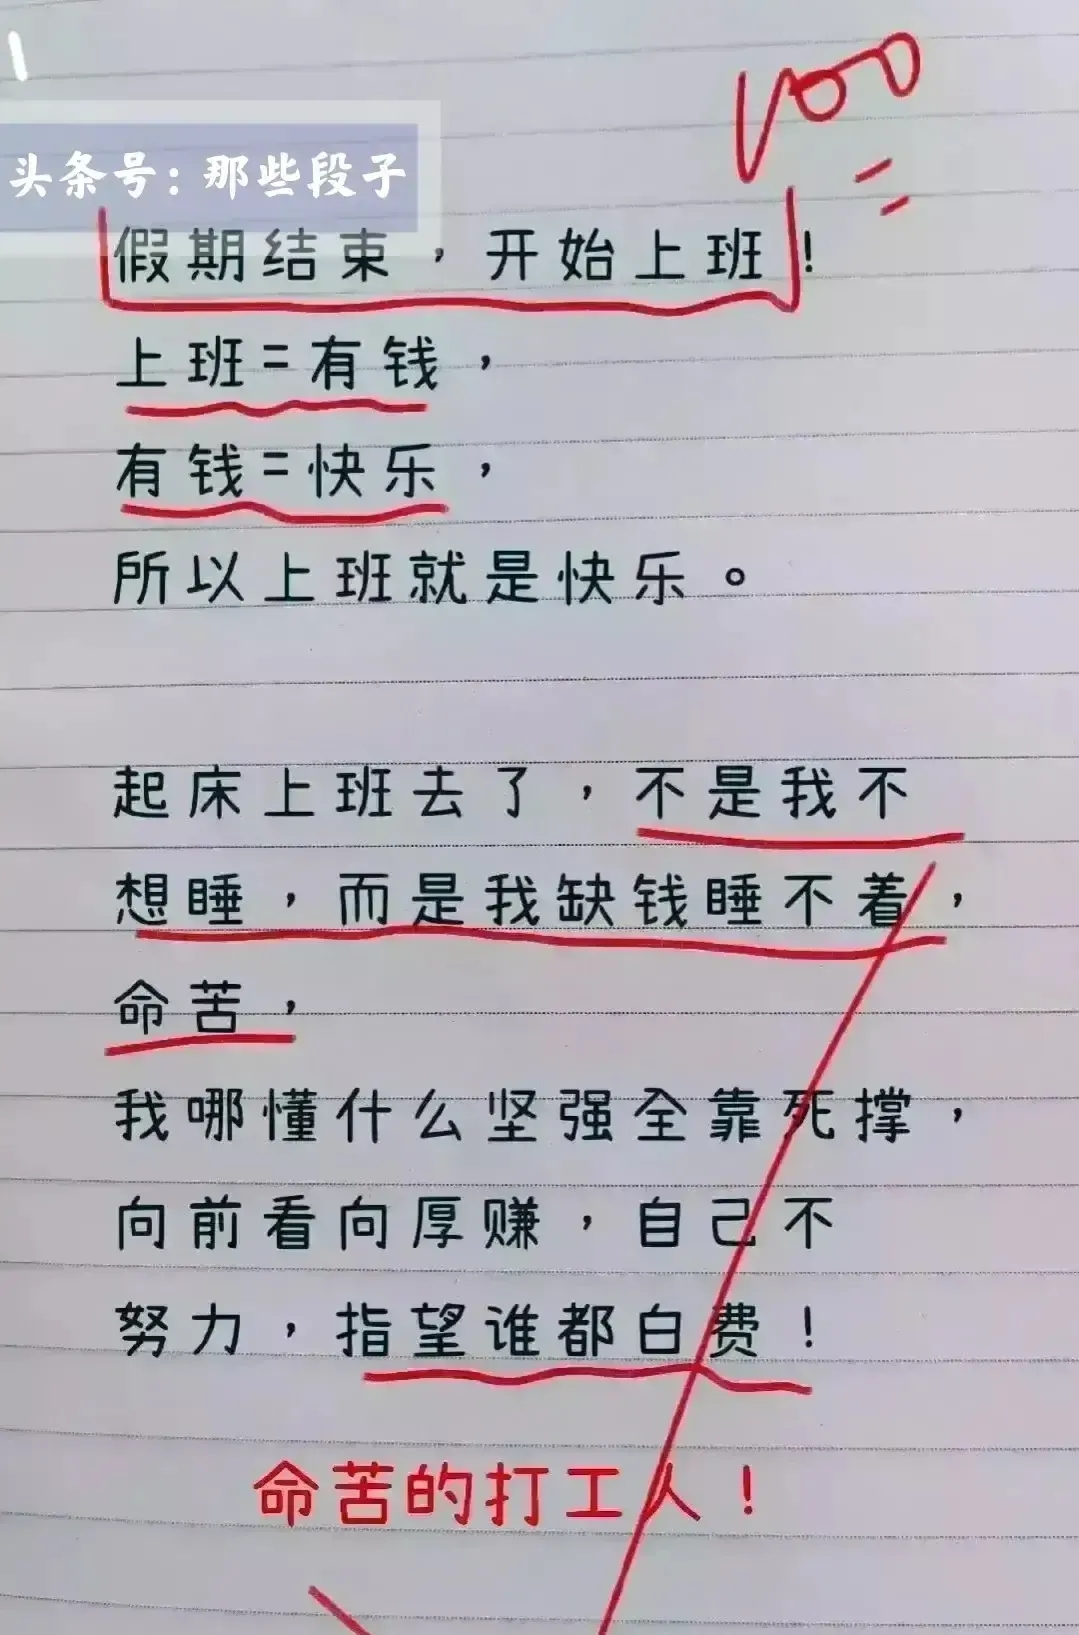 100
头条号：那些段子
假期结束，开始上班！
上班=有钱，
有钱=快乐，
所以上班就是快乐。
起床上班去了，不是我不
想睡，而是我缺钱睡不着，
命苦，
我哪懂什么坚强全靠死撑，
向前看向厚赚，自己不
努力，指望谁都白费！
命苦的打工人！